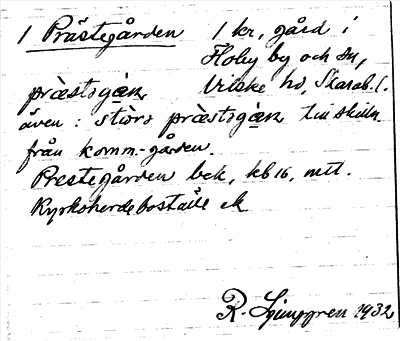 1 Prästegården 1 kr, gård i
Floby by och sn,
Vilske hd, Skarab. l.
præstəgàɳ
även: stòrə præstəgàɳ till skilln.
från komm.-gården.
Prestegården bek, kb 16, mtl.
Kyrkoherdeboställe ek
R. Ljunggren 1932